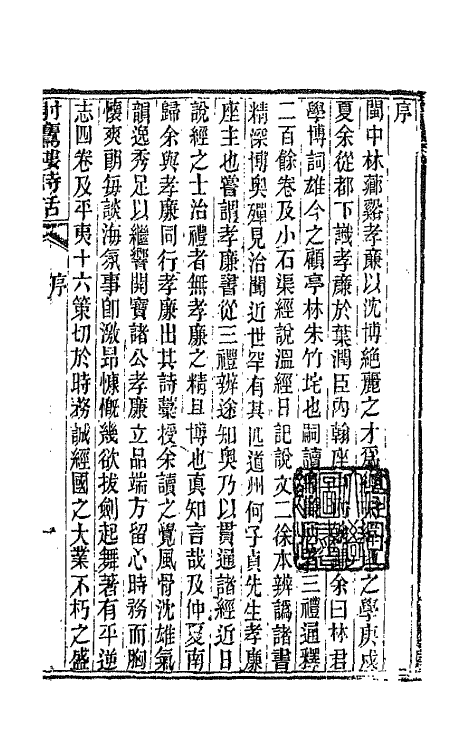 序
閩中林薌谿孝廉以沈博絶麗之才爲之學庚戌
夏余從都下識孝廉於葉潤臣內翰座余曰林君
學博詞雄今之顧亭林朱竹垞也嗣讀三禮通釋
二百餘卷及小石渠經說溫經日記說文二徐本辨譌諸書
精深博奧殫見洽聞近世罕有其匹道州何子貞先生孝廉
座主也嘗謂孝廉書從三禮辨途知奧乃以貫通諸經近日
說經之士治禮者無孝廉之精且博也真知言哉及仲夏南
歸余與孝廉同行孝廉出其詩藁授余讀之覺風骨沈雄氣
韻逸秀足以繼響開寶諸公孝廉立品端方留心時務而胸
懷爽朗每談海氛事卽激昂慷慨幾欲拔劍起舞著有平逆
志四卷及平夷十六策切於時務誠經國之大業不朽之盛
射鷹樓詩話
序